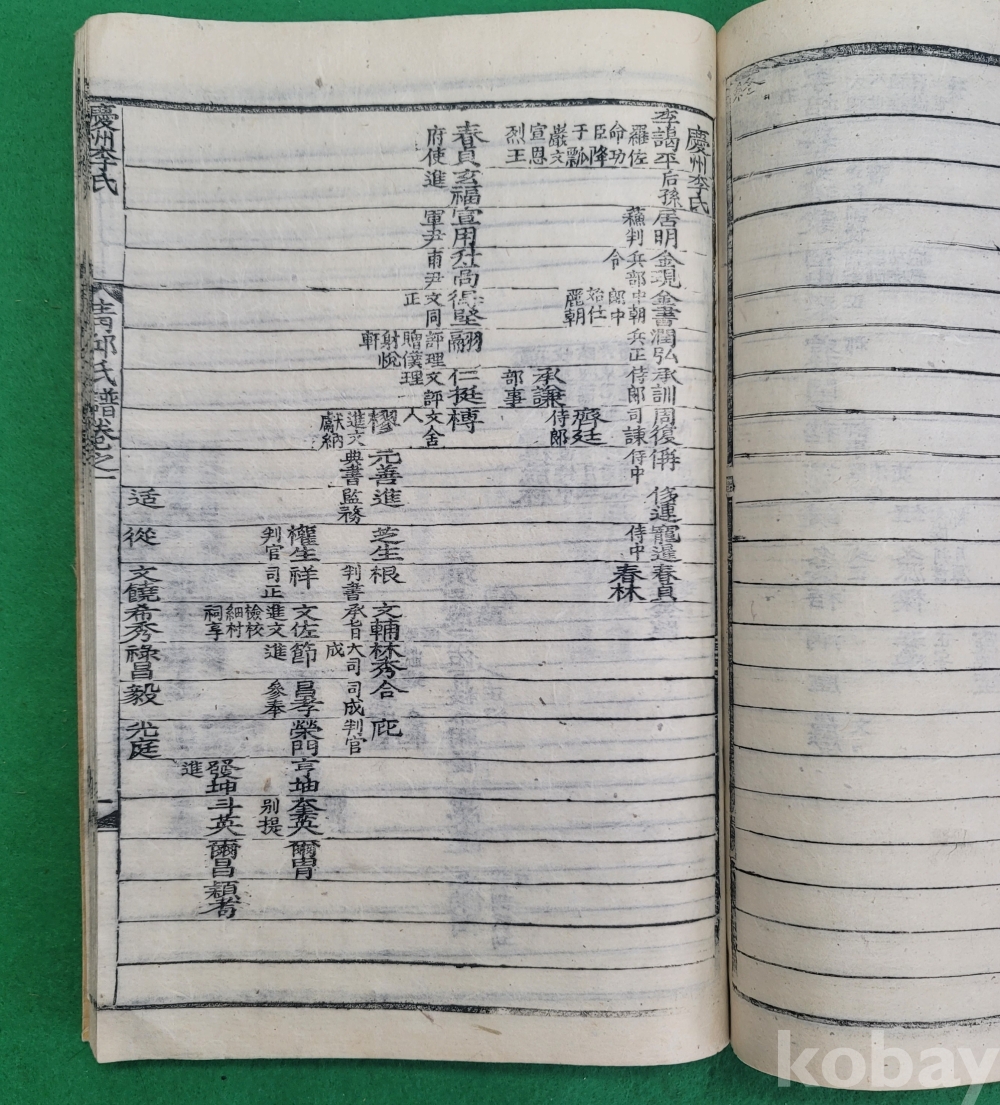 慶州李氏
李謁平后孫居明金現金書潤弘承訓周復偁
羅佐
命功
臣降
子瓢
巖文
宣恩
烈王
蘇判
兵部
令
中朝
郎中
始仕
麗朝
兵正
侍郎
司諫
侍中
侍中
春貞
春林
承謙
部事
齊廷
侍郎
春貞玄福宣用升高得堅翮仁挺槫
府使
進
軍尹
甫尹
文同
正
評理
贈僕
射悅
軒
文評
理
文舍
人
樛元善進
進文
獻納
典書
監務
芝生根文輔林秀合庇
判書
承旨
大司
成
司成
判官
權生祥文佐節昌孝榮門亨坤奎英爾胄
判官
司正
進文
檢校
細村
祠享
進
參奉
別提
發坤斗英爾昌
進
适從文饒希秀祿昌毅光庭
慶州李氏
青邱氏譜卷之一
kobay